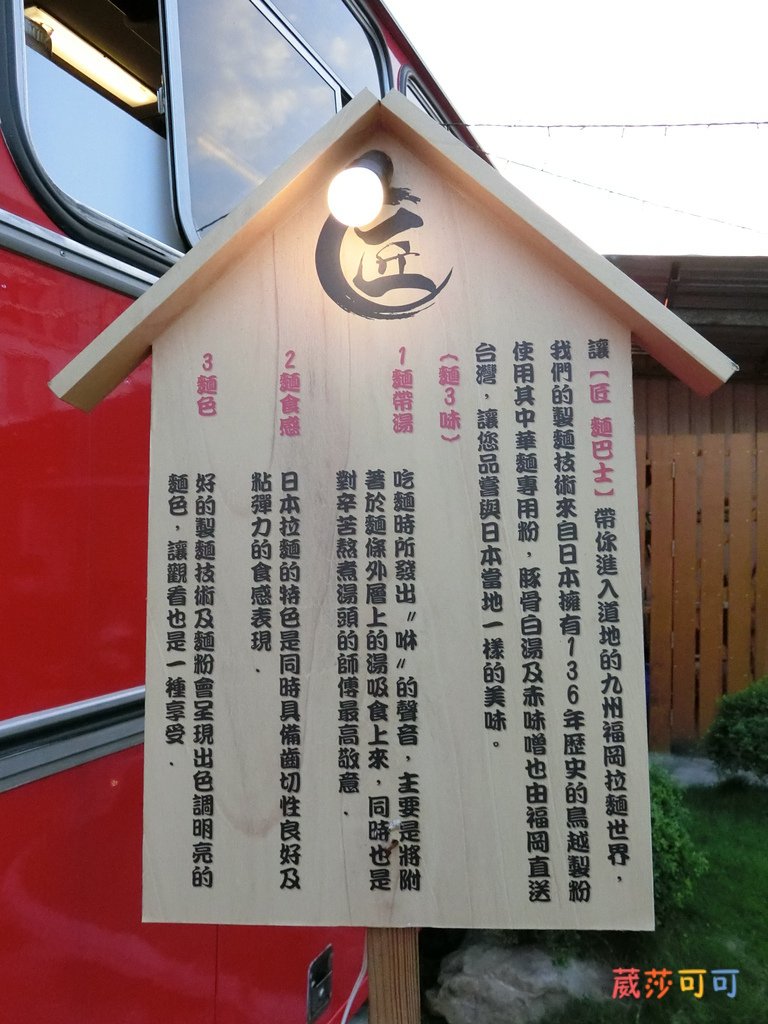 匠
讓【匠 麵巴士】帶你進入道地的九州福岡拉麵世界，
我們的製麵技術來自日本擁有136年歷史的鳥越製粉
使用其中華麵專用粉，豚骨白湯及赤味噌也由福岡直送
台灣，讓您品嘗與日本當地一樣的美味。
（麵3味）
1麵帶湯
吃麵時所發出〃咻〃的聲音，主要是將附
著於麵條外層上的湯吸食上來，同時也是
對辛苦熬煮湯頭的師傅最高敬意．
2麵食感
日本拉麵的特色是同時具備齒切性良好及
粘彈力的食感表現．
3麵色
好的製麵技術及麵粉會呈現出色調明亮的
麵色，讓觀看也是一種享受．
葳莎可可